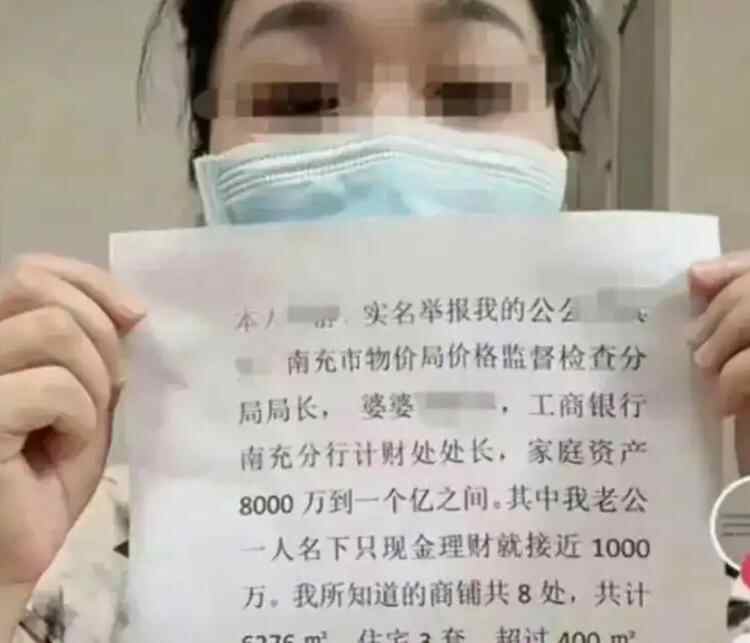 本人 实名举报我的公公
南充市物价局价格监督检查分
局局长， 婆婆 ，工商银行
南充分行计财处处长，家庭资产
8000 万到一个亿之间。其中我老公
一人名下只现金理财就接近 1000
万。我所知道的商铺共 8 处，共计
6276 ㎡，住宅 3 套，超过 400 ㎡